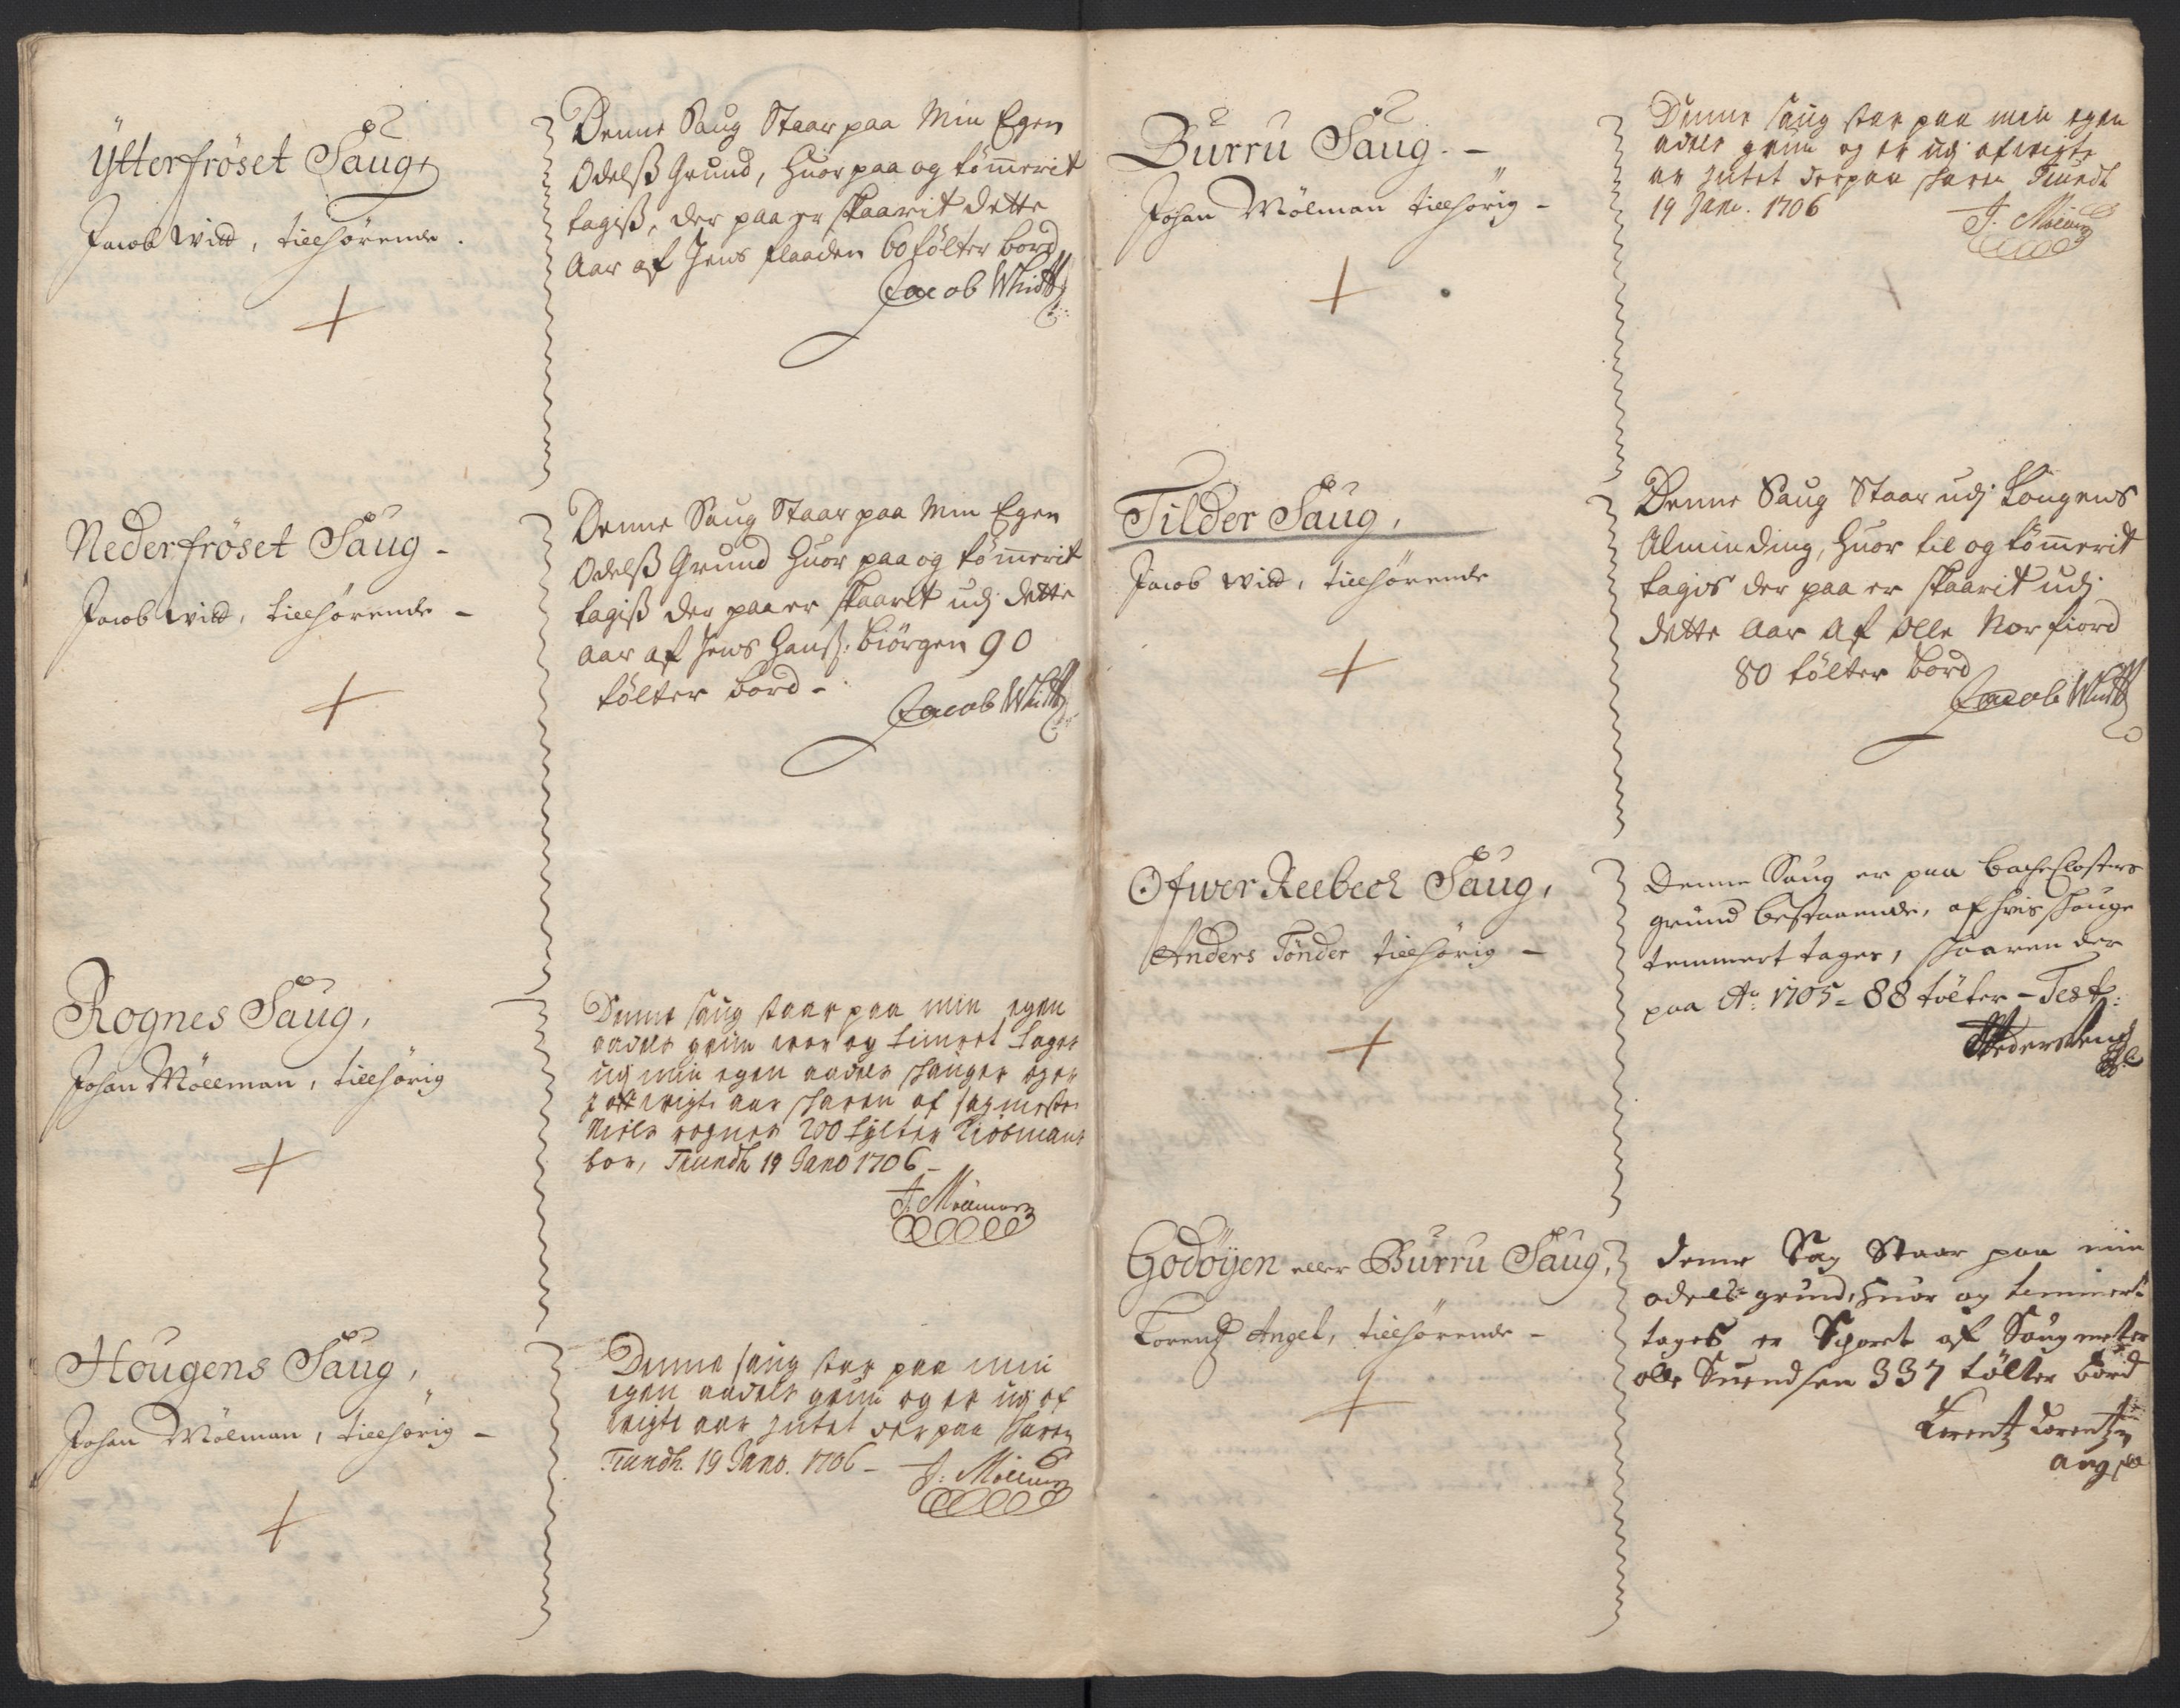 Ytterfröset Saug,
Jacob Witt, tillhørende.
Denne Saug Staar paa Min Egen
Odelß Grund, huor paa og tömerit
tagiß, der paa er skaarit dette
Aar af Jens flaaden 60 tölter bord
Jacob Whitt
Nederfröset Saug -
Jacob Witt, tillhørende -
Denne Saug Staar paa Min Egen
Odelß Grund huor paa og tömerit
tagiß der paa er skaarit udj dette
aar af Jens Hanß: biörgen 90
tölter bord -
Jacob Whitt
Rognes Saug,
Johan Möllman, tillhörig
Denne saug staar paa min egen
aadels grün og timret tages
udj min egen aadels skauger og er
aar skaren af sagmester
Niels rognes 200 tylter
bor, Trundh 19 Jano 1706 -
J. Möllman
Hougens Saug,
Johan Mölman, tillhörig -
Denne saug star paa min
egen aadels grün og er udj af
vigte aar intet der paa skaren
Trundh. 19 Jano. 1706 -
J: Möllman
Burru Saug. -
Johan Mölman tillhörig -
Denne saug star paa min egen
adels grün og er udj afvigte
ar intet derpaa skaren Trundh
19 Jano. 1706
J. Möllman
Tilder Saug,
Jacob Witt, tillhørende
Denne Saug Staar udj Kongens
Alminding, huor til og tömerit
tagis der paa er skaarit udj
dette Aar Af Olle Norfiord
80 tölter bord
Jacob Whitt
Ofwer Reebeck Saug,
Anders Tönder tillhörig -
Denne Saug er paa Bache Closters
grund bestaaende, af huis skouge
temmert tages, skaaren der
paa Ao: 1705 - 88 tölter - Test:
Godöyen eller Burru Saug,
Lorentz Angel, tillhørende -
denne Sag Staar paa min
odels grund, huor og temmert
tages er Skoret af Saugmester
olle Suendsen 337 tölter bord
Lorentz Lorentzen
angell